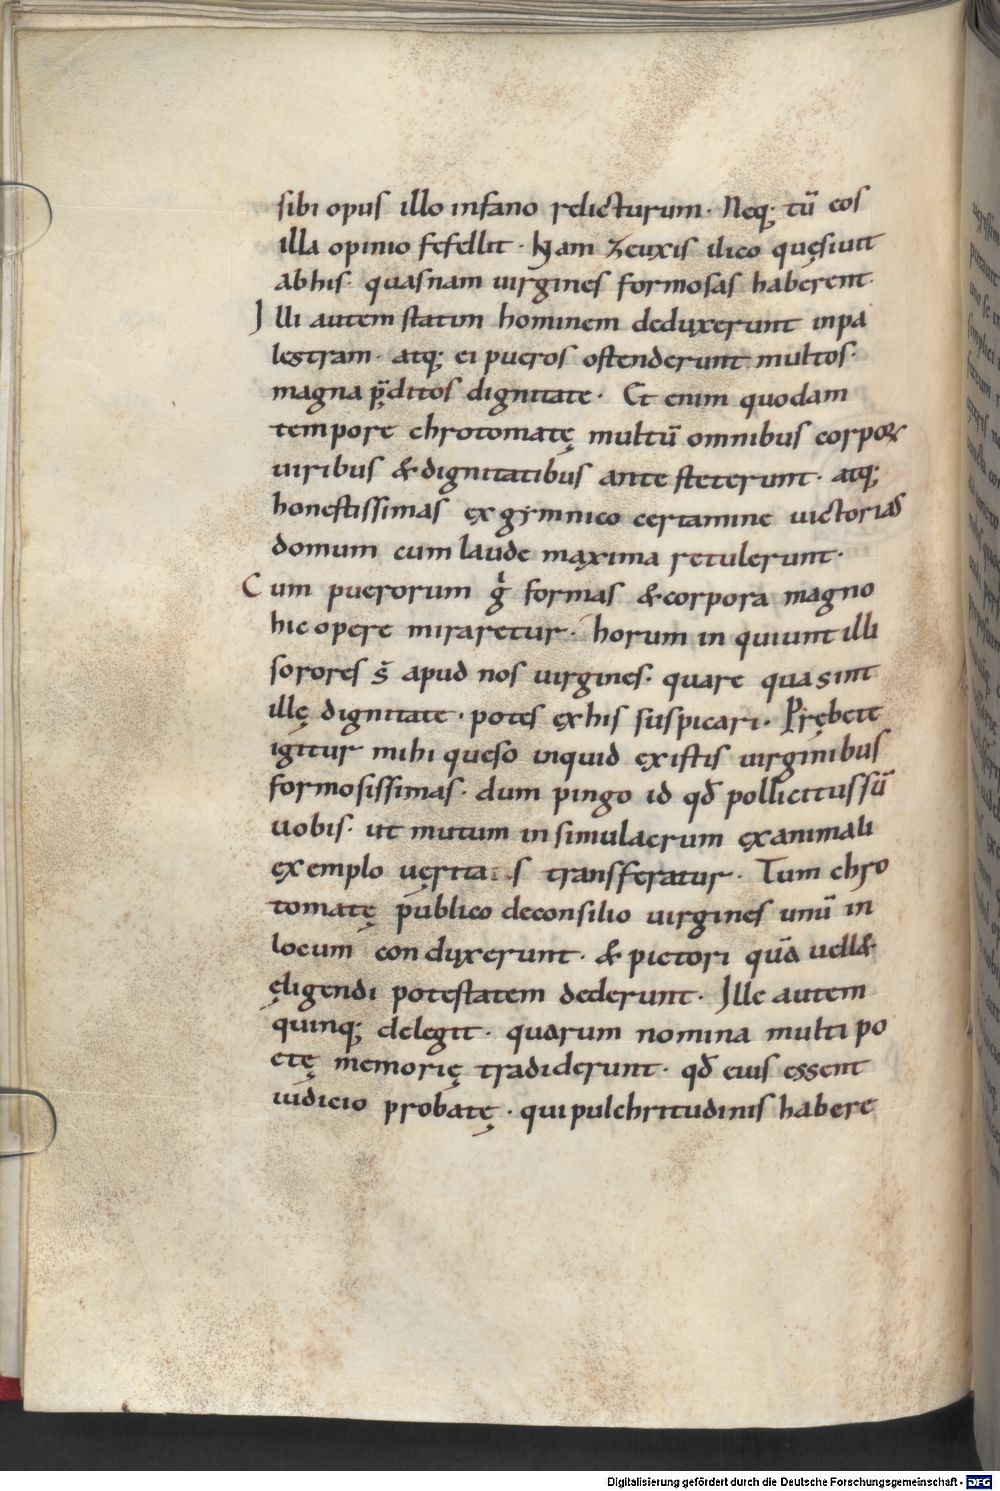 sibi opus illo infano relicturum· Neq; tū eos
illa opinio fefellit· Nam zeuxis ilico quęsiuit
abhis· quasnam uirgines formosas haberent·
Illi autem statim hominem deduxerunt inpa
lestram· atq; ei pueros ostenderunt multos·
magna p̄ditos dignitate· Et enim quodam
tempore chrotomatę multū omnibus corpoꝝ
uiribus & dignitatibus ante steterunt· atq;
honestissimas ex gymnico certamine uictorias
domum cum laude maxima retulerunt·
Cum puerorum g̍ formas & corpora magno
hic opere miraretur· horum in quiunt illi
sorores s̄ apud nos uirgines· quare qua sint
illę dignitate· potes exhis suspicari· Prębete
igitur mihi queso inquid existis uirginibus
formosissimas· dum pingo id qđ pollicitus sū
uobis· ut mutum in simulacrum exanimali
exemplo uęrita s transferatur· Tum chro
tomatę publico deconsilio uirgines unū in
locum con duxerunt· & pictori quā uell&
ęligendi potestatem dederunt· Ille autem
quinq; delegit· quarum nomina multi po
etę memorię tradiderunt· qđ eius essent
iudicio probatę· qui pulchritudinis habere
Digitalisierung gefördert durch die Deutsche Forschungsgemeinschaft - DFG